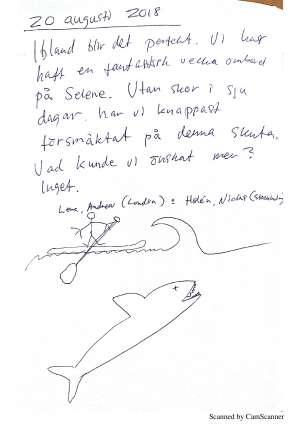 20 augusti 2018
Ibland blir det perfekt. Vi har
haft en fantastisk vecka ombord
på Selene. Utan skor i sju
dagar, har vi knappast
försmäktat på denna skuta.
Vad kunde vi önskat mer?
Inget.
Lena, Andrew (London) : Helén, Niclas (Stockholm)
Scanned by CamScanner